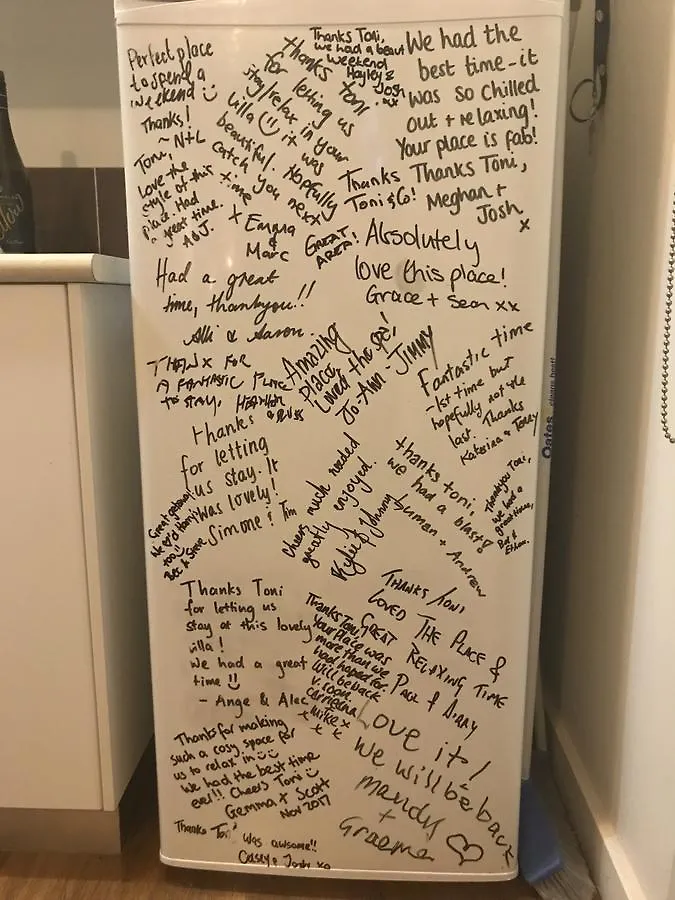 Perfect place
to spend a
weekend
Thanks!
~ N+L
Toni,
Love the
style of this
place. Had
a great time.
A&J.
thanks toni
for letting us
stay/relax in your
villa it was
beautiful. Hopfully
catch you next
time
x Emma
&
Marc
Thanks Toni,
we had a beaut
weekend
Hayley &
Josh
xx
We had the
best time-it
was so chilled
out + relaxing!
Your place is fab!
Thanks Toni,
Meghan +
Josh
x
Thanks
Toni & Co!
GREAT
AREA!
Absolutely
love this place!
Grace + Sean xx
Had a great
time, thankyou!!
Alli & Aaron.
THANX FOR
A FANTASTIC PLACE
TO STAY, HEATHER
& RUSS
Amazing
Place,
Loved the spa!
Jo-Ann - JIMMY
Fantastic time
-1st time but
hopefully not the
last. Thanks
Katerina & Terry
Thanks
for letting
us stay. It
was lovely!
Simone & Tim
Great getaway
too!!
Bec & Steve
Cheers much needed
greatly enjoyed.
Kylie & Johnny
thanks toni,
we had a blast
+ Andrew
Thankyou Toni,
we had a
great time,
Ethan.
Thanks Toni
for letting us
stay at this lovely
villa!
We had a great
time
- Ange & Alec
THANKS TONI
LOVED THE PLACE &
GREAT RELAXING TIME
PAUL &
Thanks Toni,
Your place was
more than we
had hoped for.
Will be back
v. soon.
Carriena
Mike x
x x
Thanks for making
such a cosy space for
us to relax in
We had the best time
ever!! Cheers Toni
Gemma + Scott
Nov 2017
Love it!
We will be back
mandy
+
Graeme
Thanks Toni
was awsome!!
Casey & Josh xo
Oates